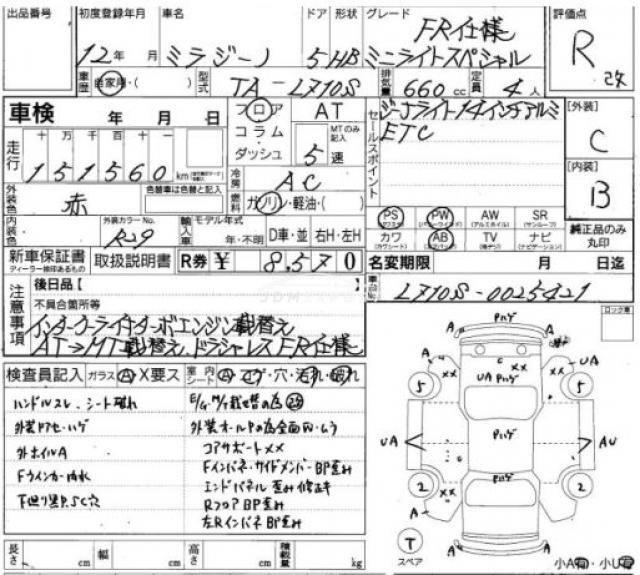 出品番号 初度登録年月 車名 ドア 形状 グレード 評価点
FR仕様
12年 月 ミラジーノ 5 HB ミニライトスペシャル R
車歴 自家用・( ) 型式 TA-L710S 排気量 660 cc 定員 4 人 改
車検 年 月 日
フロア コラム・ダッシュ
AT
MTのみ記入
5 速
セールスポイント
ジーノライト14インチアルミ
ETC
[外装]
C
[内装]
B
走行 十 万 千 百 十 一
151560 km
冷房 AC
外装色 赤 色替車は色替と記入
燃料 ガソリン・軽油・( )
PS (パワステ) PW (パワーウィンド) AW (アルミホイル) SR (サンルーフ)
カワ (カワシート) AB (エアバック) TV (地デジ) ナビ (ナビゲーション)
純正品のみ丸印
内装色 外装カラーNo. R29
輸入車 モデル年式 年・不明 D車・並 右H・左H
新車保証書 ディーラー捺印あるもの 取扱説明書 R券 ¥ 8,570
名変期限 月 日迄
車台No. L710S-0025421
注意事項
後日品【 】
不具合箇所等
インタークーラー付ターボエンジン載替え
AT→MT載替え、ドラシャレスFR仕様
ロック車
検査員記入 ガラス A・X要ス 室内シート A・コゲ・穴・汚れ・破れ
ハンドルスレ、シート破れ
外装ドアセ・ハゲ
外ホイルA
Fウインカー内水
下廻り黒P、SC穴
E/G、M/T載せ替の為
外装オールPの為全面W・ムラ
コアサポートXX
Fインパネ・サイドメンバーBP歪み
エンドパネル歪み修正キ
RフロアBP歪み
左RインパネBP歪み
Pハゲ
A A
A XX XX UA
5 UA Pハゲ 5
UA Pハゲ AU
2 XX XX 2
A Pハゲ A
T スペア
A A
小A有・小U有
長さ cm 幅 cm 高さ cm 積載量 kg